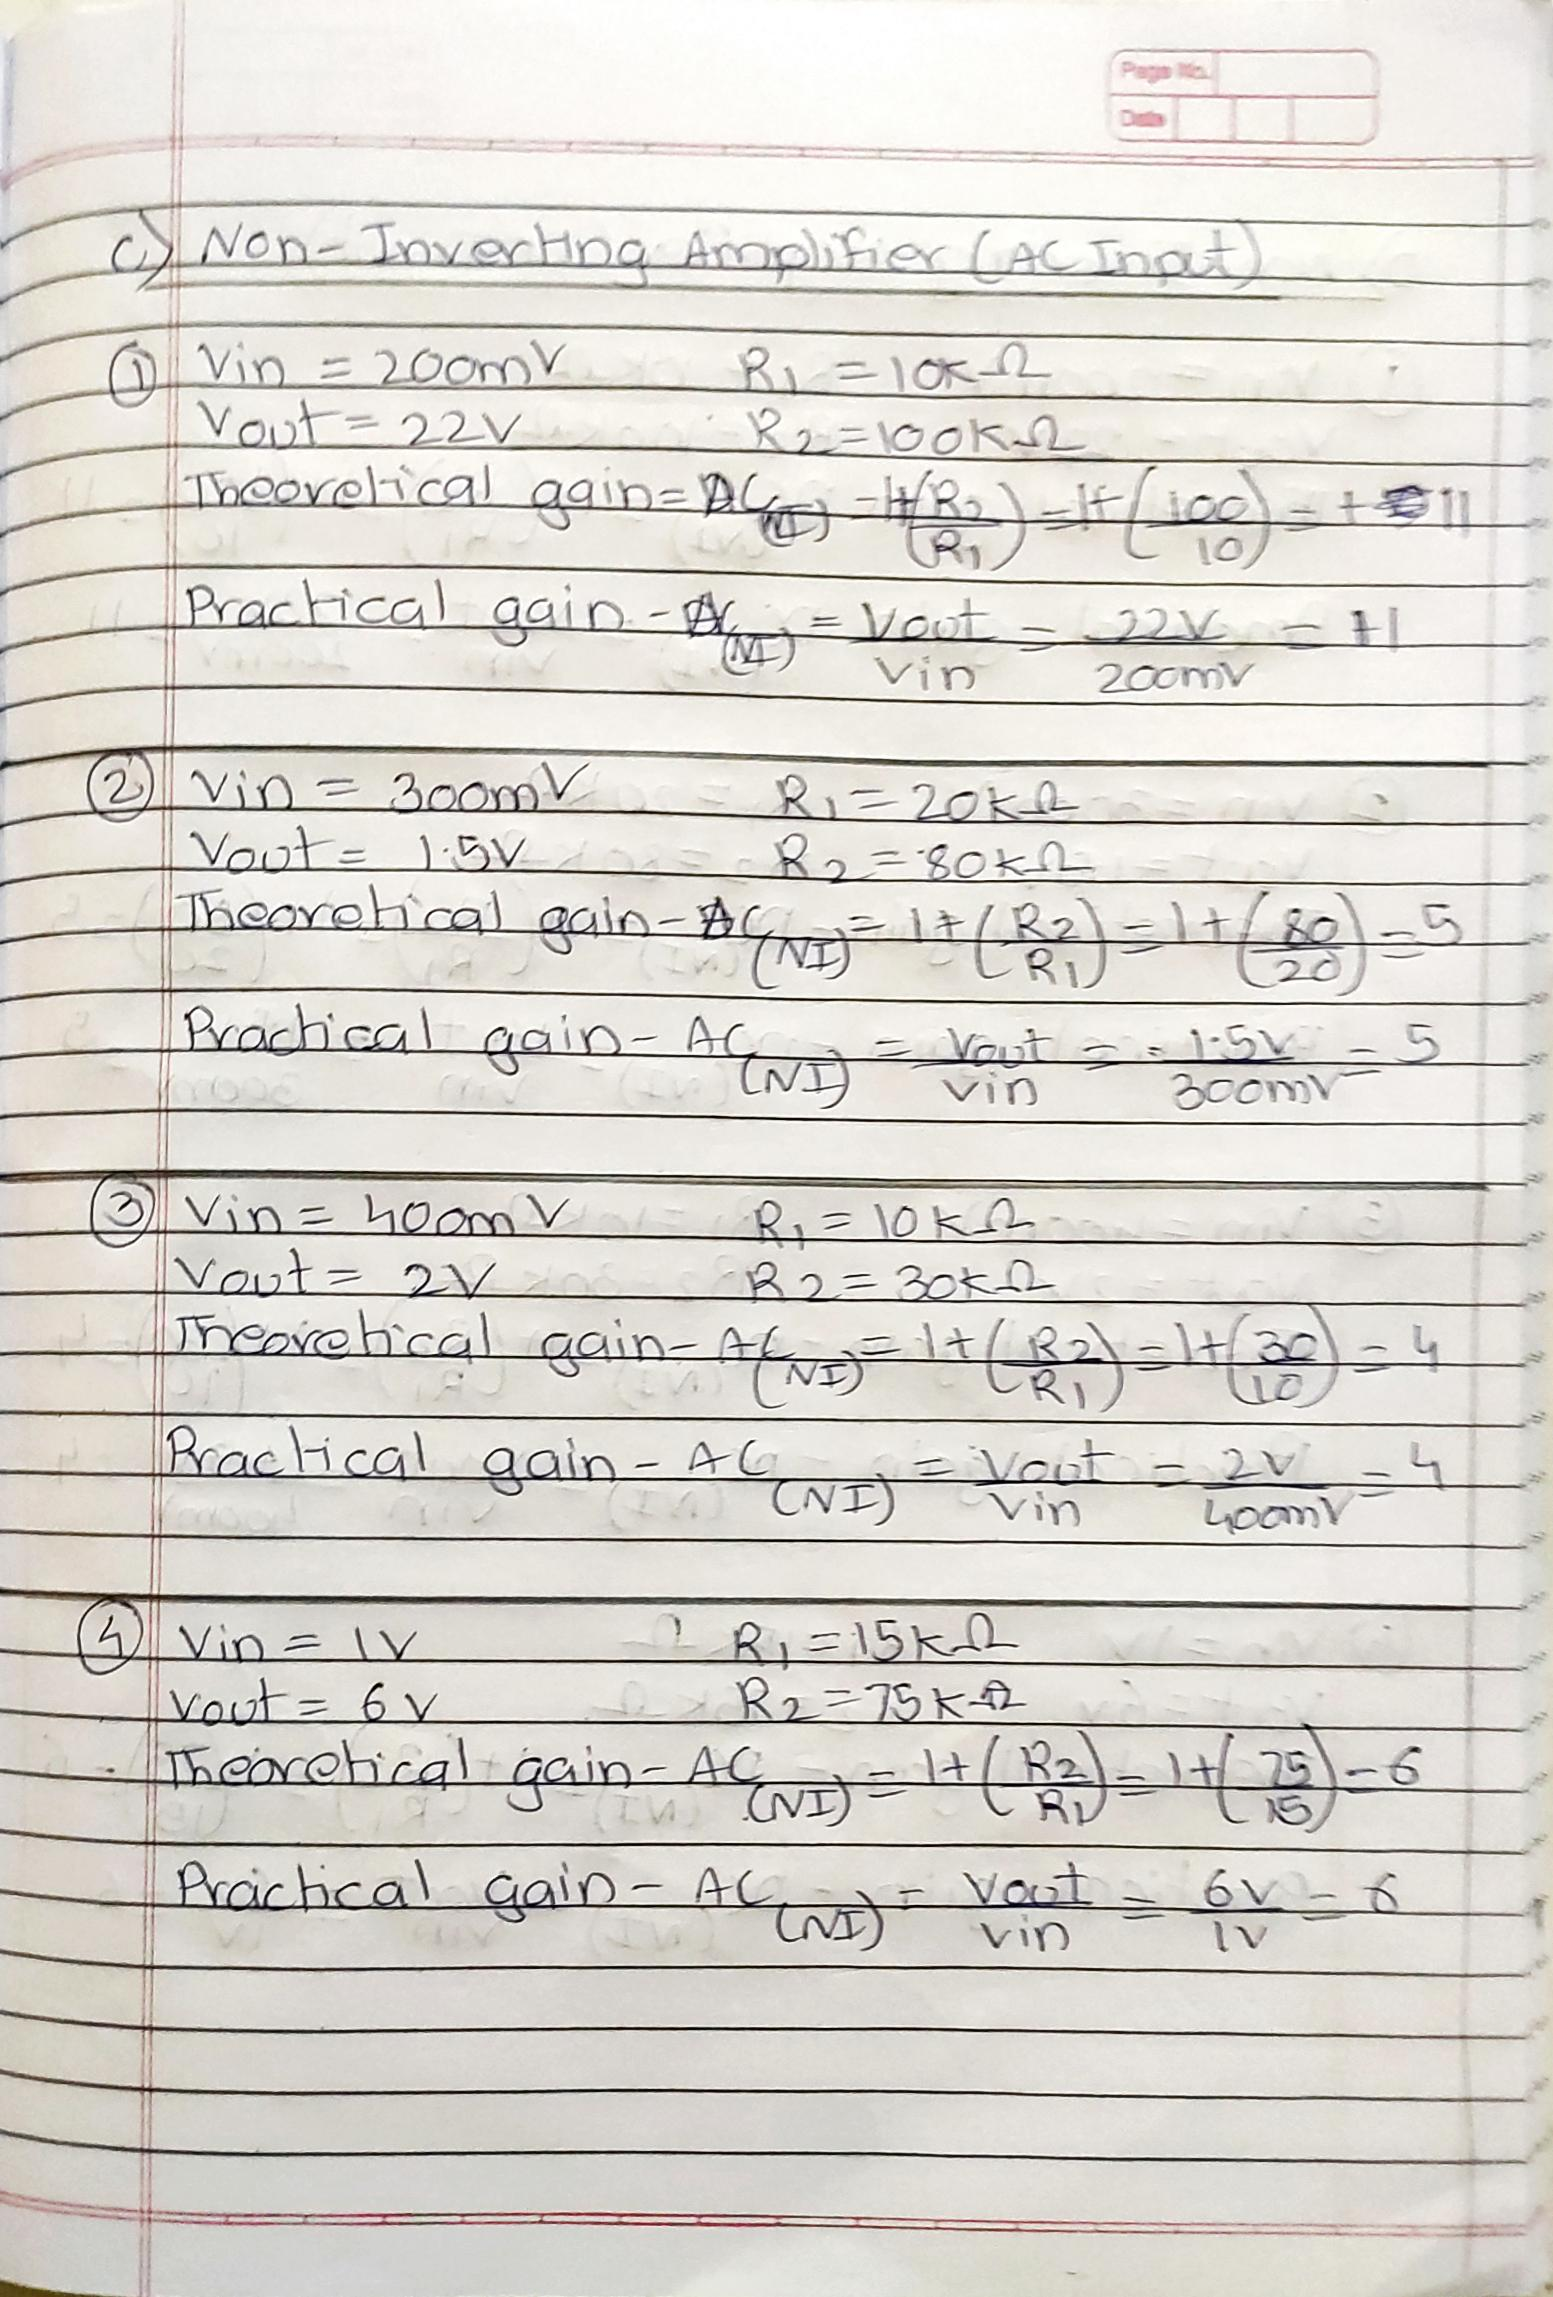 Page No.
Date
C) Non-Inverting Amplifier (AC Input)
① Vin = 200mV R1 = 10KΩ
Vout = 22V R2 = 100KΩ
Theoretical gain = AC(NI) = 1+(R2/R1) = 1+(100/10) = + 11
Practical gain - AC(NI) = Vout/Vin = 22V/200mV = +1
② Vin = 300mV R1 = 20KΩ
Vout = 1.5V R2 = 80KΩ
Theoretical gain - AC(NI) = 1+(R2/R1) = 1+(80/20) = 5
Practical gain - AC(NI) = Vout/Vin = 1.5V/300mV = 5
③ Vin = 400mV R1 = 10KΩ
Vout = 2V R2 = 30KΩ
Theoretical gain - AC(NI) = 1+(R2/R1) = 1+(30/10) = 4
Practical gain - AC(NI) = Vout/Vin = 2V/400mV = 4
④ Vin = 1V R1 = 15KΩ
Vout = 6V R2 = 75KΩ
Theoretical gain - AC(NI) = 1+(R2/R1) = 1+(75/15) = 6
Practical gain - AC(NI) = Vout/Vin = 6V/1V = 6